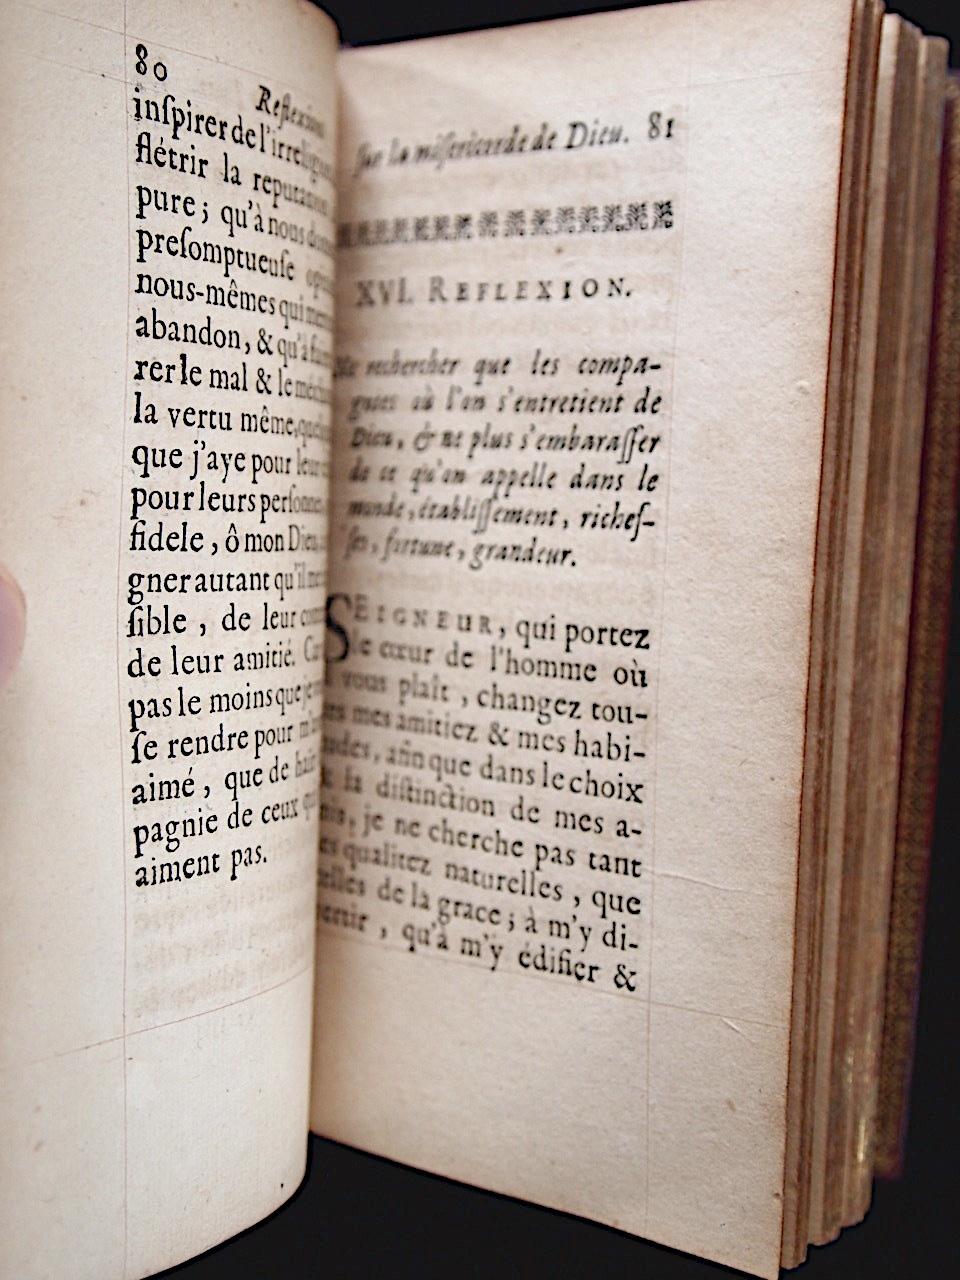 80
Reflexions
inſpirer de l'irreligion
flétrir la reputation
pure ; qu'à nous donner
preſomptueuſe
nous-mêmes qui
abandon, & qu'à
rer le mal & le
la vertu même,
que j'aye pour leur
pour leurs perſonnes
fidele, ô mon Dieu,
gner autant qu'il
ſible, de leur
de leur amitié. Car
pas le moins que je
ſe rendre pour m'
aimé, que de haïr
pagnie de ceux
aiment pas.
ſur la miſericorde de Dieu. 81
XVI. REFLEXION.
Ne rechercher que les compa-
gnies où l'on s'entretient de
Dieu, & ne plus s'embaraſſer
de ce qu'on appelle dans le
monde, établiſſement, richeſ-
ſes, fortune, grandeur.
SEIGNEUR, qui portez
le cœur de l'homme où
il vous plaît, changez tou-
tes mes amitiez & mes habi-
tudes, afin que dans le choix
& la diſtinction de mes a-
mis, je ne cherche pas tant
les qualitez naturelles, que
celles de la grace ; à m'y di-
vertir, qu'à m'y édifier &